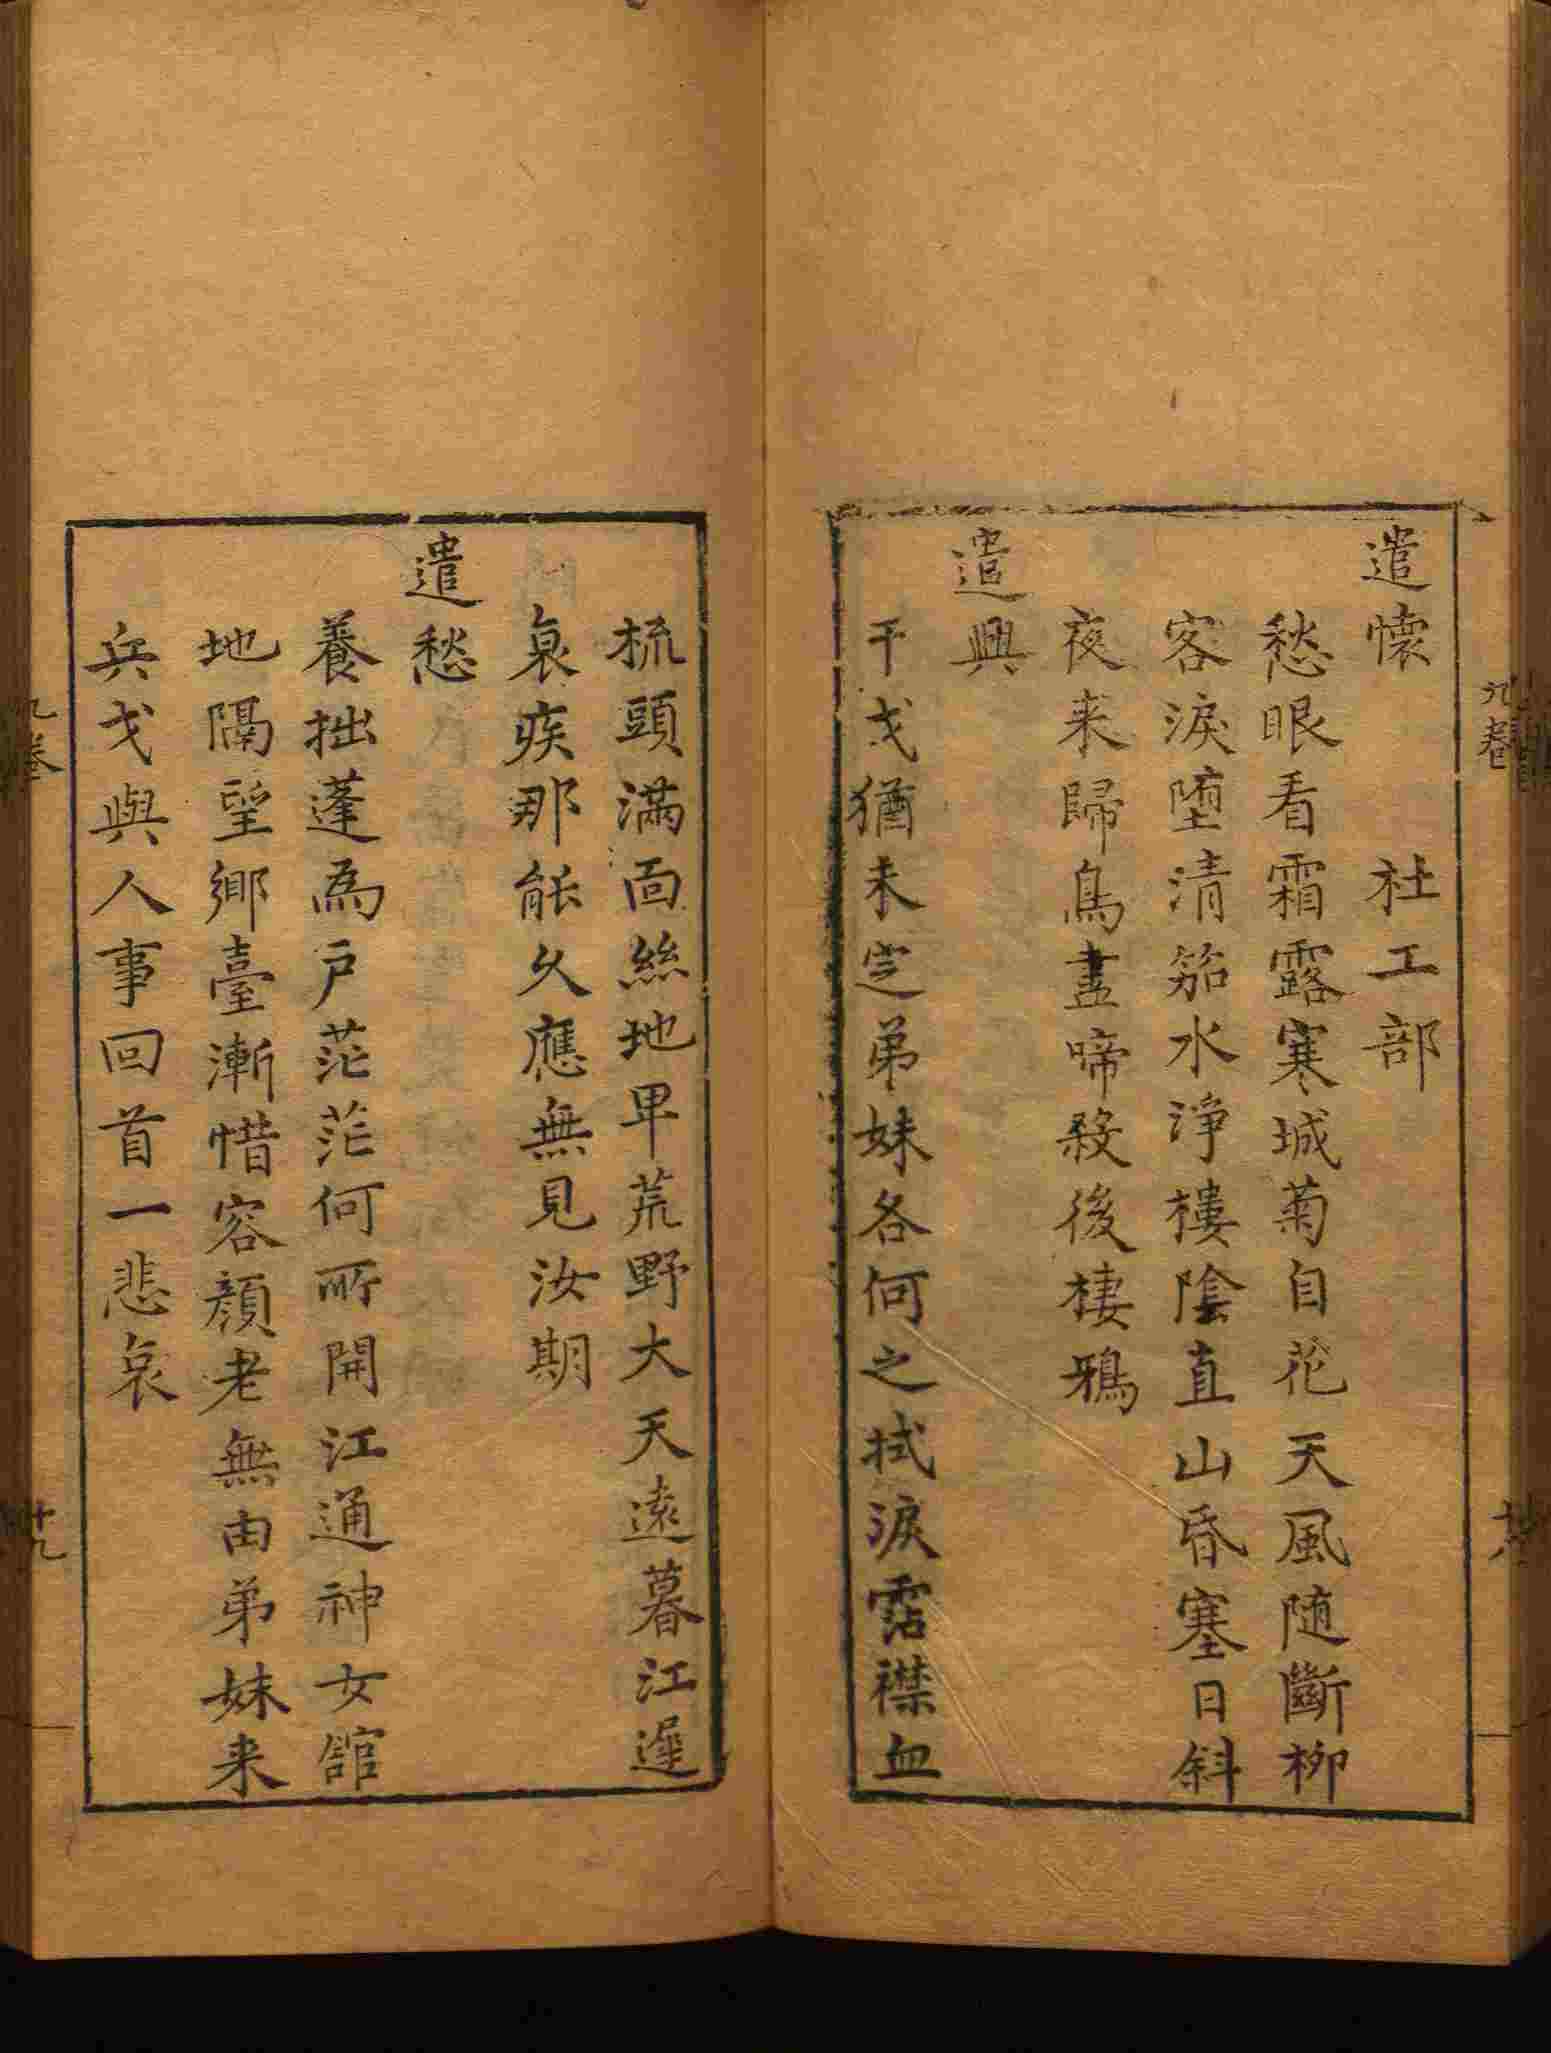 遣懷　杜工部
愁眼看霜露寒城菊自花天風随斷柳
客淚堕清笳水淨樓陰直山昏塞日斜
夜来歸鳥盡啼殺後棲鴉
遣興
干戈猶未定弟妹各何之拭淚霑襟血
梳頭滿面絲地卑荒野大天遠暮江遲
衰疾那能久應無見汝期
遣愁
養拙蓬為戶茫茫何所開江通神女館
地隔望鄉臺漸惜容顏老無由弟妹来
兵戈與人事回首一悲哀
九卷
九卷
十九